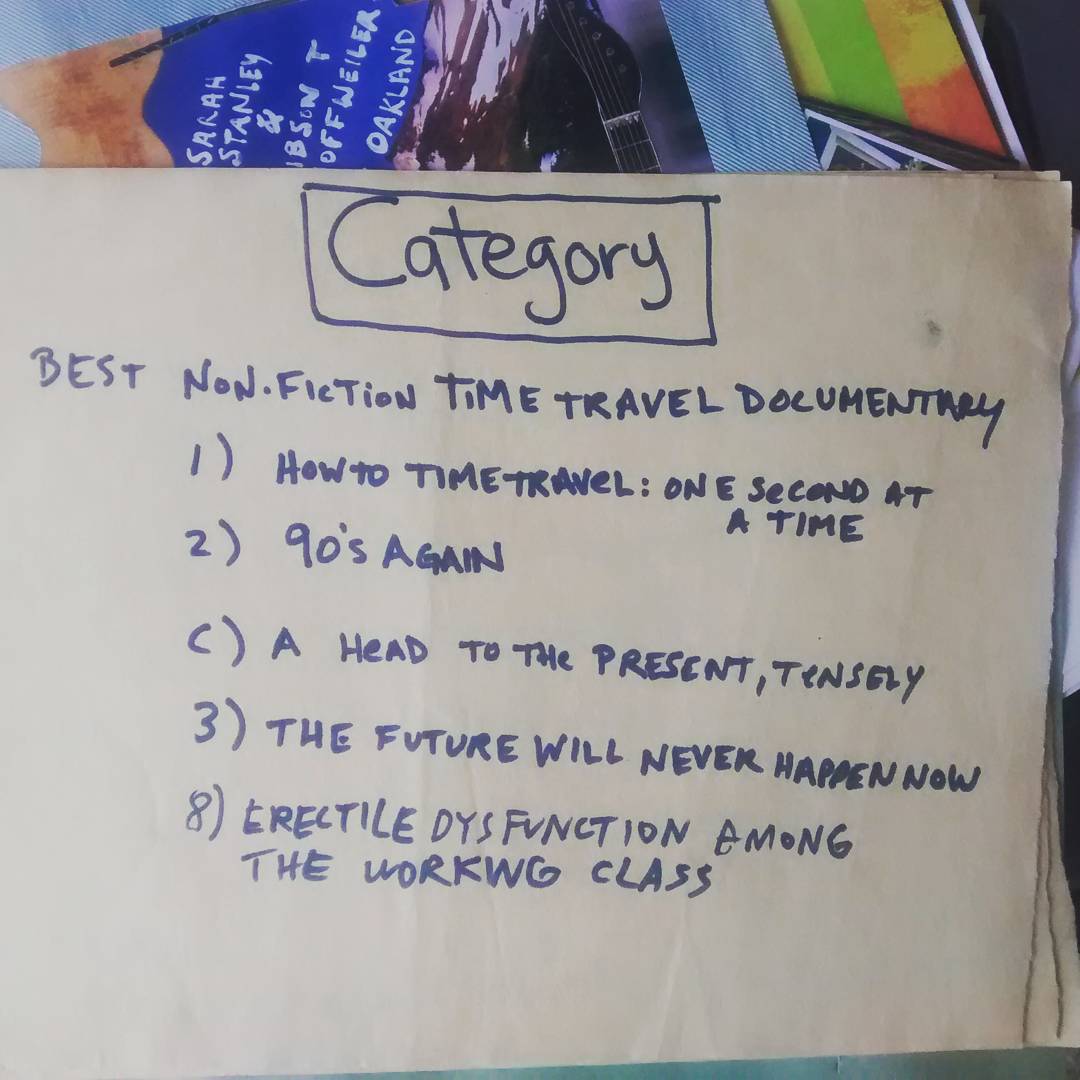 SARAH
STANLEY
&
IBSON T
OFFWEILER
OAKLAND
Category
BEST NON-FICTION TIME TRAVEL DOCUMENTARY
1) HOW TO TIME TRAVEL: ONE SECOND AT
A TIME
2) 90's AGAIN
C) A HEAD TO THE PRESENT, TENSELY
3) THE FUTURE WILL NEVER HAPPEN NOW
8) ERECTILE DYSFUNCTION AMONG
THE WORKING CLASS